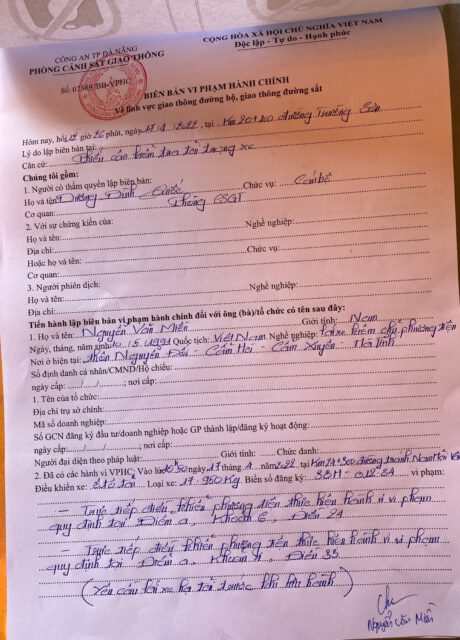 CÔNG AN TP ĐÀ NẴNG
PHÒNG CẢNH SÁT GIAO THÔNG
CỘNG HÒA XÃ HỘI CHỦ NGHĨA VIỆT NAM
Độc lập - Tự do - Hạnh phúc
Số: 07389/BB-VPHC
BIÊN BẢN VI PHẠM HÀNH CHÍNH
Về lĩnh vực giao thông đường bộ, giao thông đường sắt
Hôm nay, hồi 12 giờ 26 phút, ngày 17/4/2022, tại Km 20+100 đường Trường Sơn
Lý do lập biên bản tại:
Căn cứ: Phiếu cân kiểm tra tải trọng xe
Chúng tôi gồm:
1. Người có thẩm quyền lập biên bản:
Họ và tên: Dương Đình Quốc Chức vụ: Cán bộ
Cơ quan: Phòng CSGT
2. Với sự chứng kiến của:
Họ và tên: Nghề nghiệp:
Địa chỉ:
Hoặc họ và tên: Chức vụ:
Cơ quan:
3. Người phiên dịch:
Họ và tên: Nghề nghiệp:
Địa chỉ:
Tiến hành lập biên bản vi phạm hành chính đối với ông (bà)/tổ chức có tên sau đây:
1. Họ và tên: Nguyễn Văn Miền Giới tính: Nam
Ngày, tháng, năm sinh: 10/5/1991 Quốc tịch: Việt Nam Nghề nghiệp: Tài xế kiêm chủ phương tiện
Nơi ở hiện tại: thôn Nguyễn Đối - Cẩm Hà - Cẩm Xuyên - Hà Tĩnh
Số định danh cá nhân/CMND/Hộ chiếu:
ngày cấp: / / ; nơi cấp:
1. Tên của tổ chức:
Địa chỉ trụ sở chính:
Mã số doanh nghiệp:
Số GCN đăng ký đầu tư/doanh nghiệp hoặc GP thành lập/đăng ký hoạt động:
ngày cấp: / / ; nơi cấp:
Người đại diện theo pháp luật: Giới tính: Chức danh:
2. Đã có các hành vi VPHC: Vào lúc 10 30 ngày 17 tháng 4 năm 2022 tại Km 24+300 đường tránh Nam Hải Vân
Điều khiển xe: Ô tô tải Loại xe: 17.950 Kg Biển số đăng ký: 38H - 012.34 vi phạm:
- Trực tiếp điều khiển phương tiện thực hiện hành vi vi phạm
quy định tại Điểm a, Khoản 6, Điều 24
- Trực tiếp điều khiển phương tiện thực hiện hành vi vi phạm
quy định tại Điểm a, Khoản 4, Điều 33
(Yêu cầu lái xe hạ tải trước khi lưu hành)
Nguyễn Văn Miền